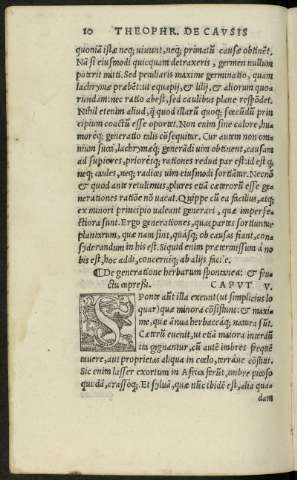 10 THEOPHR. DE CAVSIS
quoniā istæ neq; uiuunt, neq; primatũ causæ obtinẽt.
Nā si eiusmodi quicquam detraxeris, germen nullum
poterit mitti. Sed peculiaris maxime germinatio, quam
lachrymæ præbẽt: ut equapij, & lilij, & aliorum quo
rundam: nec ratio abest, sed caulibus plane respõdet.
Nihil etenim aliud, q̃ quod illarũ quoq; fœcũdũ prin
cipium coactũ esse oporteat. Non enim sine calore, hu
moreq; generatio ullis cõsequitur. Cur autem non om
nium succi, lachrymæq; generãdi uim obtineant, causam
ad supiores, prioresq; rationes redud par est: id est q̃
neq; caules, neq; radices uim eiusmodi sortiãtur. Necnõ
& quod ante retulimus, plures etiā cæterorũ esse ge
nerationes ratiõe nõ uacat. Quippe cũ ea facilius, atq;
ex minori principio ualeant generari, quæ imperfe-
ctiora sunt. Ergo generationes, quas partes sortiuntur
plantarum, quæ nam sint, quāsq; ob causas fiant, con-
syderandum in his est. Siquid enim prætermissum à no
bis est, hoc addi, concerniq; ab alijs facile.
¶ De generatione herbarum spontanea: & fru-
ctu compresso. CAPVT V.
SPonte aũt illa exeunt (ut simplicius lo
quar) quæ minora cõsistunt: & maxi-
me, quæ ānua herbaceāq; natura sũt.
Cæterũ euenit, ut etiā maiora interdũ
ita gignantur, cũ autẽ imbres frequẽ
tauere, aut proprietas aliqua in cœlo, terrāue cõstitit.
Sic enim lasser exortum in Africa ferũt, imbre piceo
quodā, crassoq;. Et syluā, quæ nũc ibidẽ est, alia qua-
dam